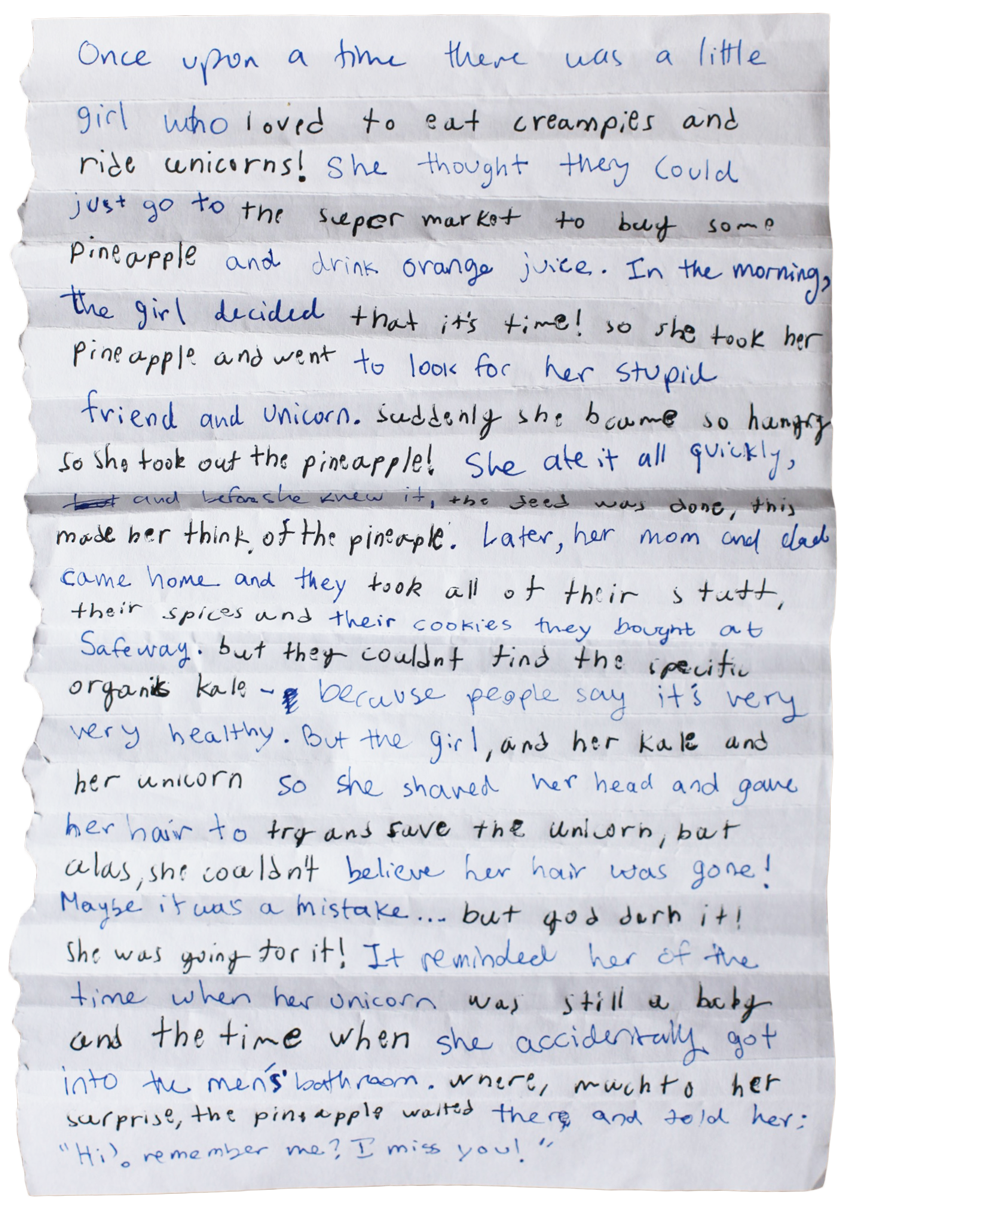 Once upon a time there was a little
girl who loved to eat creampies and
ride unicorns! She thought they could
just go to the super market to buy some
pineapple and drink orange juice. In the morning,
the girl decided that it's time! so she took her
pineapple and went to look for her stupid
friend and unicorn. suddenly she bcame so hangry
so she took out the pineapple! She ate it all quickly,
and before she knew it, the deed was done, this
made her think of the pineaple. Later, her mom and dad
came home and they took all of their stuff,
their spices and their cookies they bought at
Safeway. but they couldnt find the specific
organic kale - because people say it's very
very healthy. But the girl, and her kale and
her unicorn so she shaved her head and gave
her hair to try and save the unicorn, but
alas, she couldn't believe her hair was gone!
Maybe it was a mistake... but god darn it!
She was going for it! It reminded her of the
time when her unicorn was still a baby
and the time when she accidentally got
into the men's bathroom. where, much to her
surprise, the pineapple waited there and told her:
"Hi!. remember me? I miss you!"